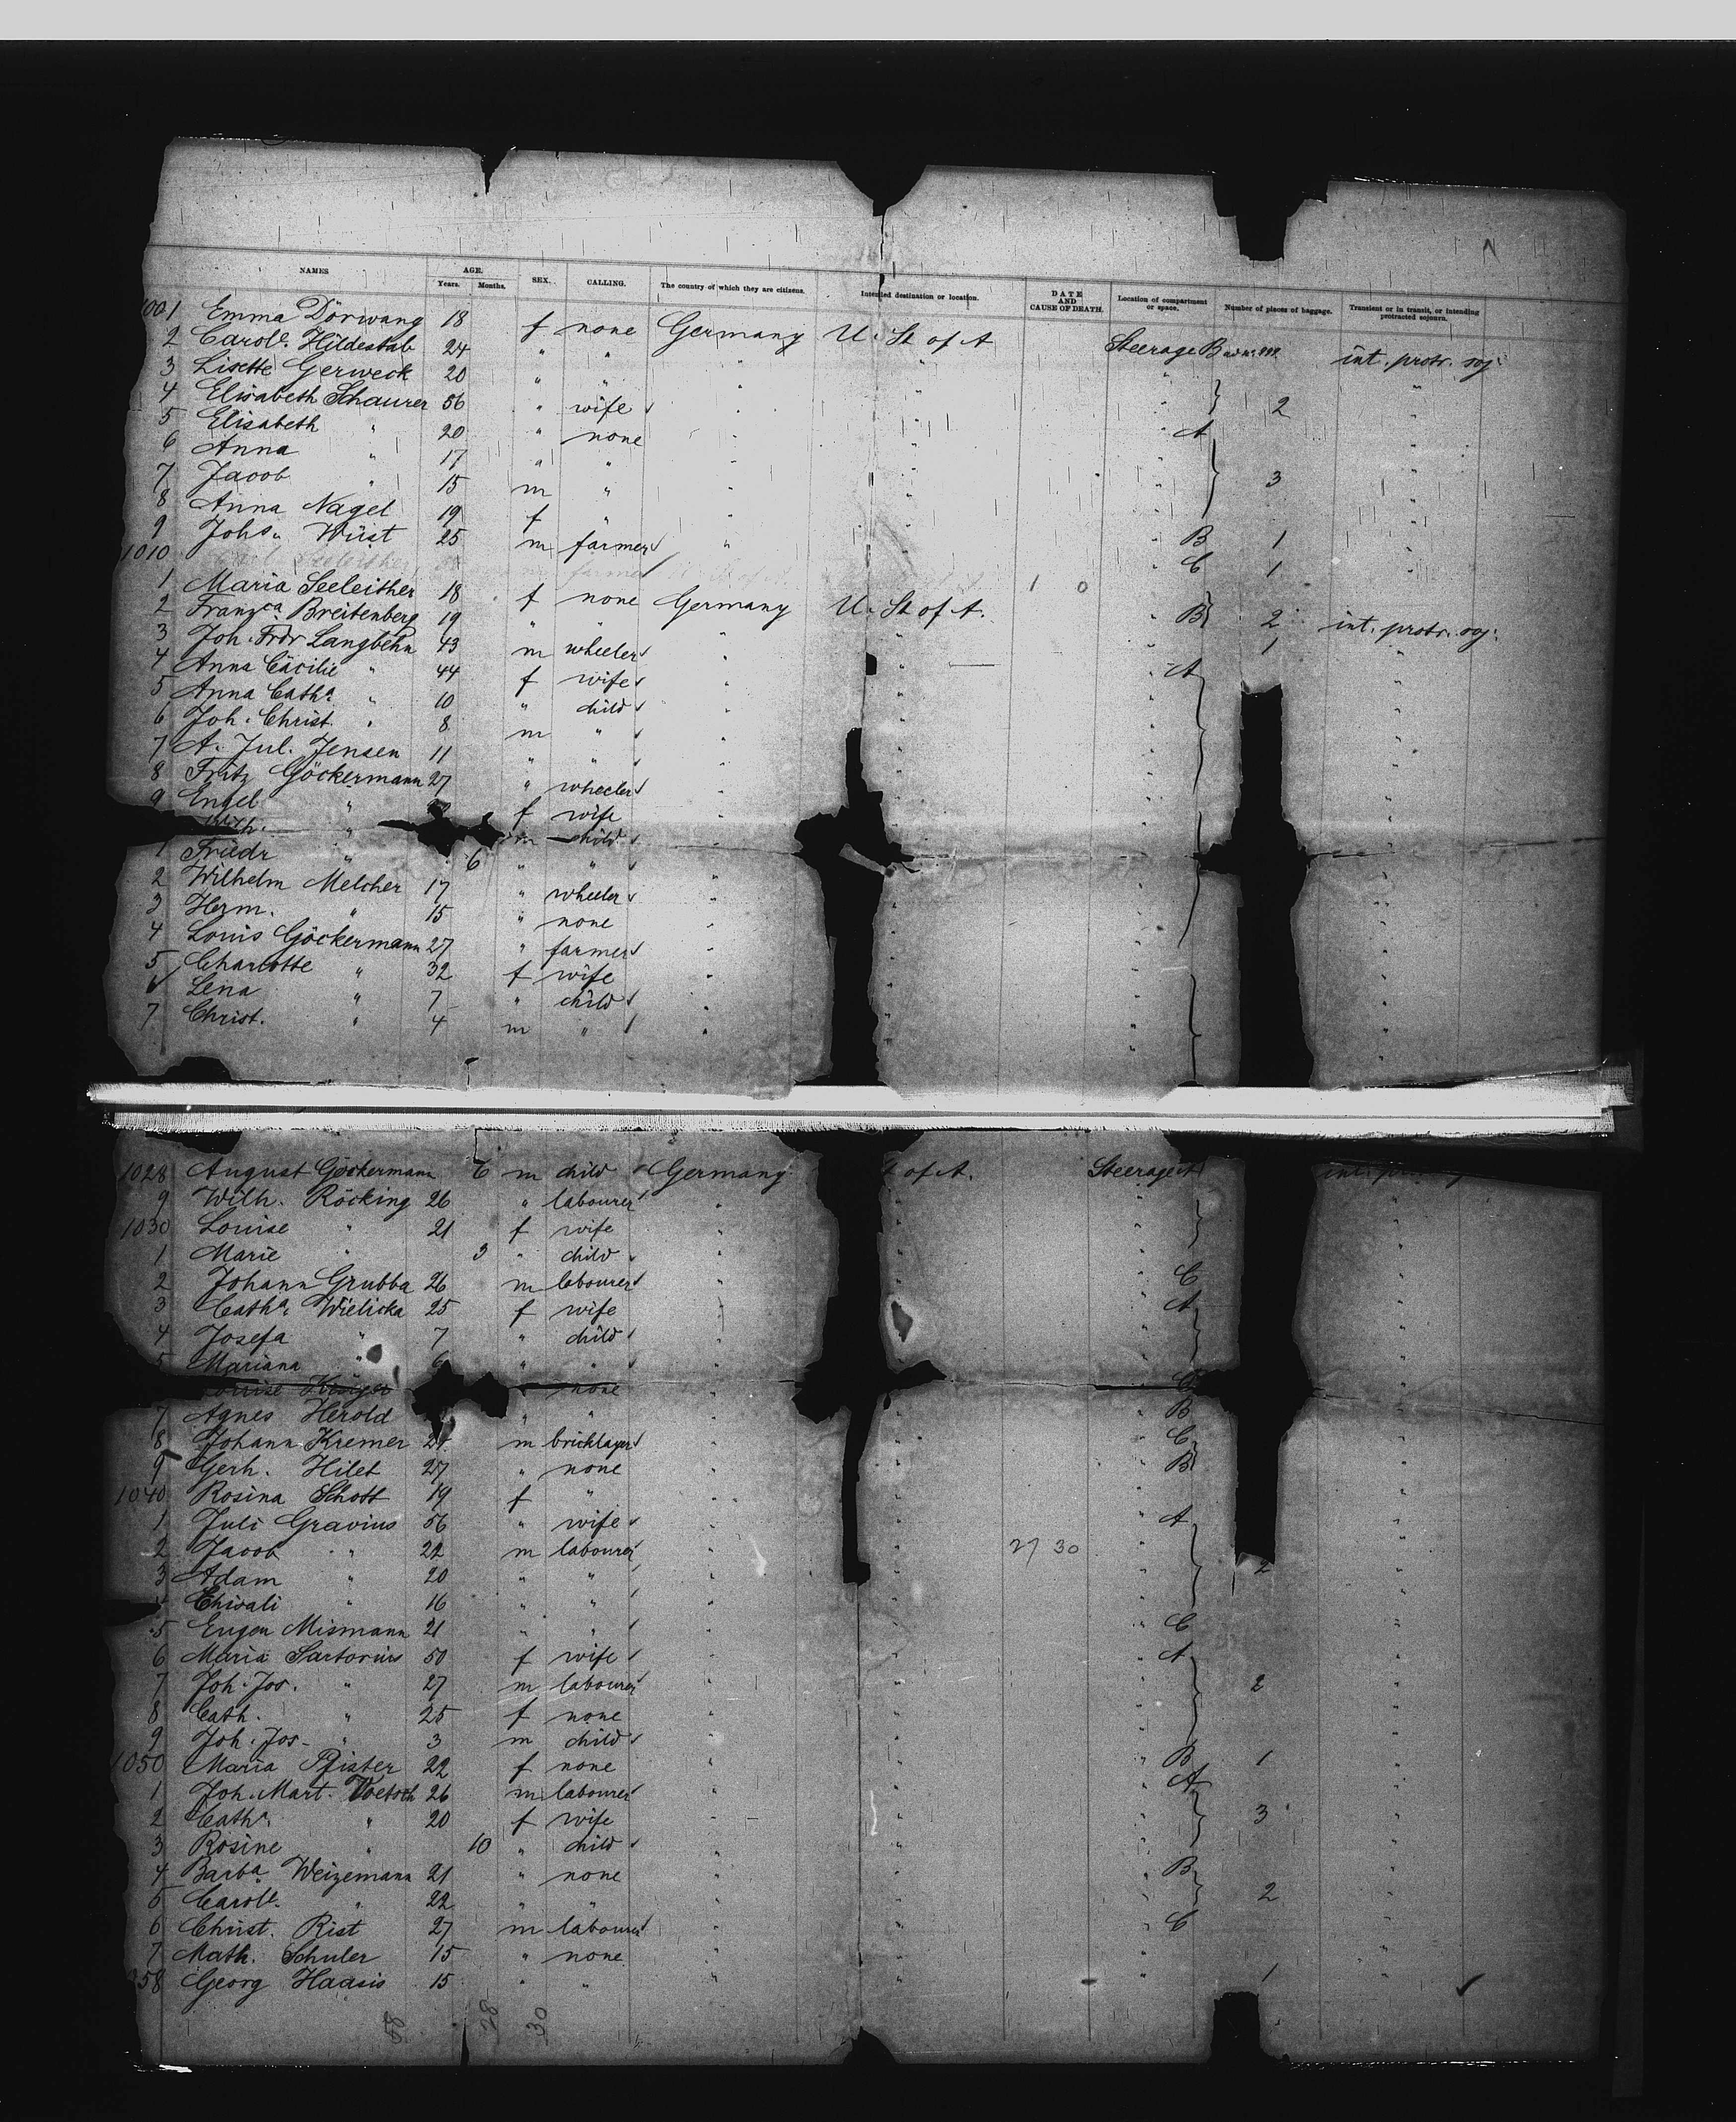 NAMES AGE. SEX. CALLING. The country of which they are citizens. Intended destination or location. DATE AND CAUSE OF DEATH. Location of compartment or space. Number of pieces of baggage. Transient or in transit, or intending protracted sojourn.
Years. Months.
1001 Emma Dörwang 18 f none Germany U. St of A Steerage B int. protr. soj.
2 Carole. Hildestab 24 " " " " " "
3 Lisette Gerweck 20 " " " " " "
4 Elisabeth Schaurer 56 " wife " " " 2 "
5 Elisabeth " 20 " none " " A "
6 Anna " 17 " " " " " "
7 Jacob " 15 m " " " " 3 "
8 Anna Nagel 19 f " " " " "
9 Johs. Wüst 25 m farmer " " B 1 "
1010 farmer C 1
1 Maria Seeleither 18 f none Germany U. St of A. B 2 int. protr. soj.
2 Franzca Breitenberg 19 " " " " " 1 "
3 Joh. Frdr Langbehn 43 m wheeler " " A "
4 Anna Cäcilie " 44 f wife " " " "
5 Anna Catha " 10 " child " " " "
6 Joh. Christ. " 8 m " " " " "
7 A. Jul. Jensen 11 " " " " " "
8 Fritz Göckermann 27 " wheeler " " " "
9 Engel " f wife " "
" m child
1 Friedr " 6 " " " " " "
2 Wilhelm Melcher 17 " wheeler " " " "
3 Herm. " 15 " none " " " "
4 Louis Göckermann 27 " farmer " " " "
5 Charlotte " 32 f wife " " " "
6 Lena " 7 " child " " " "
7 Christ. " 4 m " " " " "
1028 August Göckermann 6 m child Germany of A. Steerage A int.
9 Wilh. Röcking 26 " labourer " " " "
1030 Louise " 21 f wife " " " "
1 Marie " 3 " child " " " "
2 Johann Grubba 26 m labourer " " C "
3 Catha. Wielicka 25 f wife " " A "
4 Josefa " 7 " child " " " "
5 Mariana " 6 " " " " " "
Krüger none
7 Agnes Herold " " " " B "
8 Johann Kremer m bricklayer " " C "
9 Gerh. Hilet 27 " none " " B "
1040 Rosina Schott 19 f " " " " "
1 Juli Gravius 56 " wife " " A "
2 Jacob " 22 m labourer " " 27 30 " 2 "
3 Adam " 20 " " " " " "
Chivali " 16 " " " " " "
5 Eugen Mismann 21 " " " " C "
6 Maria Sartorius 50 f wife " " A "
7 Joh. Jos. " 27 m labourer " " " 2 "
8 Cath. " 25 f none " " " "
9 Joh. Jos. " 3 m child " " " "
1050 Maria Pfister 22 f none " " B 1 "
1 Joh. Mart. Voetsch 26 m labourer " " A "
2 Catha. " 20 f wife " " " 3 "
3 Rosine " 10 " child " " " "
4 Barba Weizemann 21 " none " " B "
5 Carole. " 22 " " " " " 2 "
6 Christ. Rist 27 m labourer " " C "
7 Math. Schuler 15 " none " " " "
58 Georg Haasis 15 " " " " " 1 "
58 28 30